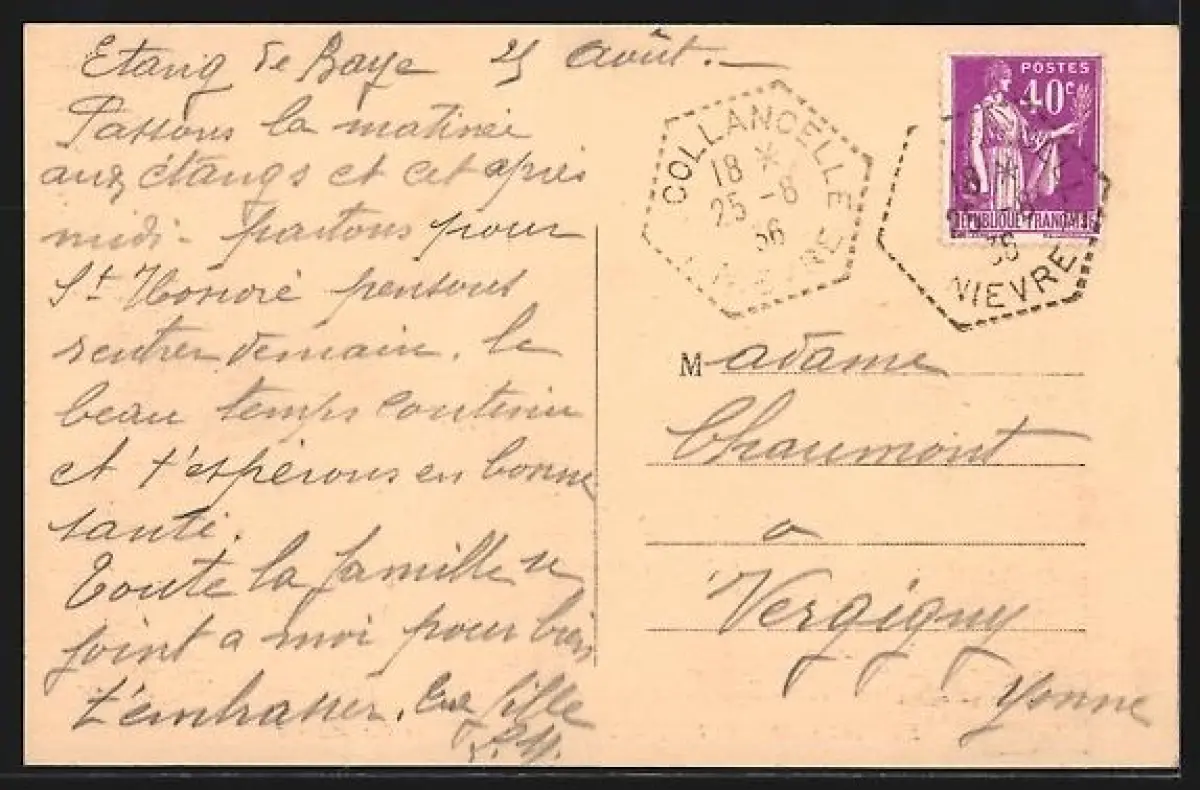 Etang de Baye 25 Août.
Passons la matinée
aux étangs et cet après
midi - partons pour
St Honoré pensons
rentrer demain. le
beau temps continu
et t'espérons en bonne
santé.
Toute la famille se
joint a moi pour bien
t'embrasser. Une fille
COLLANCELLE
18 *
25 -8
36
POSTES
40c
REPUBLIQUE FRANÇAISE
18 *
36
NIEVRE
Madame
Chaumont
a
Vergigny
Yonne